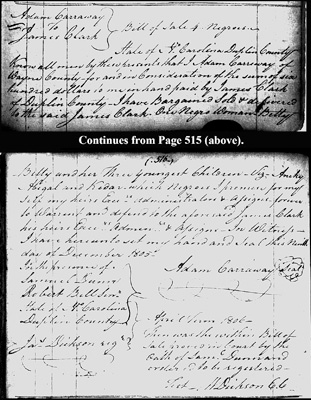 Adam Carraway
To
James Clark
Bill of Sale 4 Negroes
State of N. Carolina Duplin County
Know all men by these presents that I Adam Carraway of
Wayne County for and in Consideration of the sum of six
hundred dollars to me in hand paid by James Clark
of Duplin County I have Bargained Sold & delivered
to the said James Clark One Negro Woman Betty
Continues from Page 515 (above).
(516)
Betty and her three youngest Children Viz
Abigal and Kedar which Negroes I promise for my
self my heirs Exrs Administrators & Assigns forever
to Warrant and defend to the aforesaid James Clark
his heirs Exrs Admrs & Assigns In Witness
I have hereunto set my hand and Seal this
day of December 1805
In the presence of
Samuel Dunn
Robert Bell
Adam Carraway Seal
State of N. Carolina
Duplin County
April Term 1806
Then was the within Bill of
Sale proved in Court by the
Oath of Saml Dunn and
ordered to be registered
Test. W Dickson C.C.
Jas Dickson regr